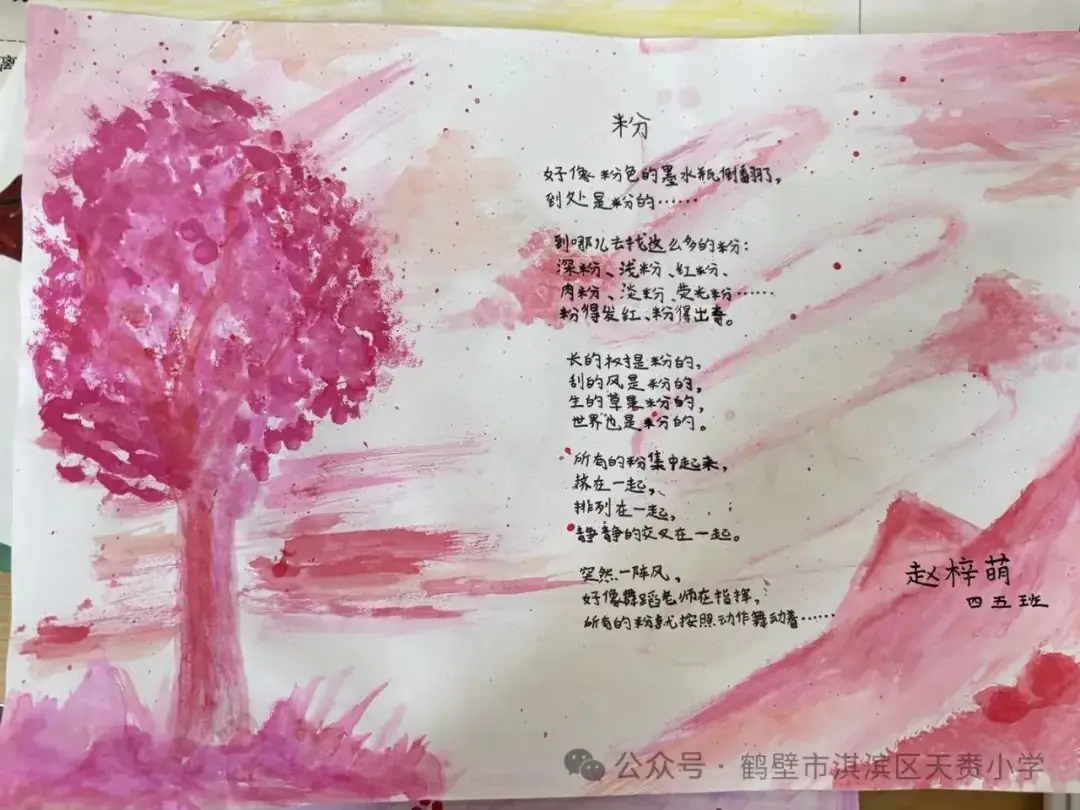 粉
好像粉色的墨水瓶倒翻了,
到处是粉的……
到哪儿去找这么多的粉:
深粉、浅粉、红粉、
肉粉、淡粉、荧光粉……
粉得发红、粉得出奇。
长的树是粉的,
刮的风是粉的,
生的草是粉的,
世界也是粉的。
所有的粉集中起来,
挤在一起,
排列在一起,
静静的交叉在一起。
突然一阵风,
好像舞蹈老师在指挥,
所有的粉就按照动作舞动着……
赵梓萌
四五班
公众号·鹤壁市淇滨区天赉小学